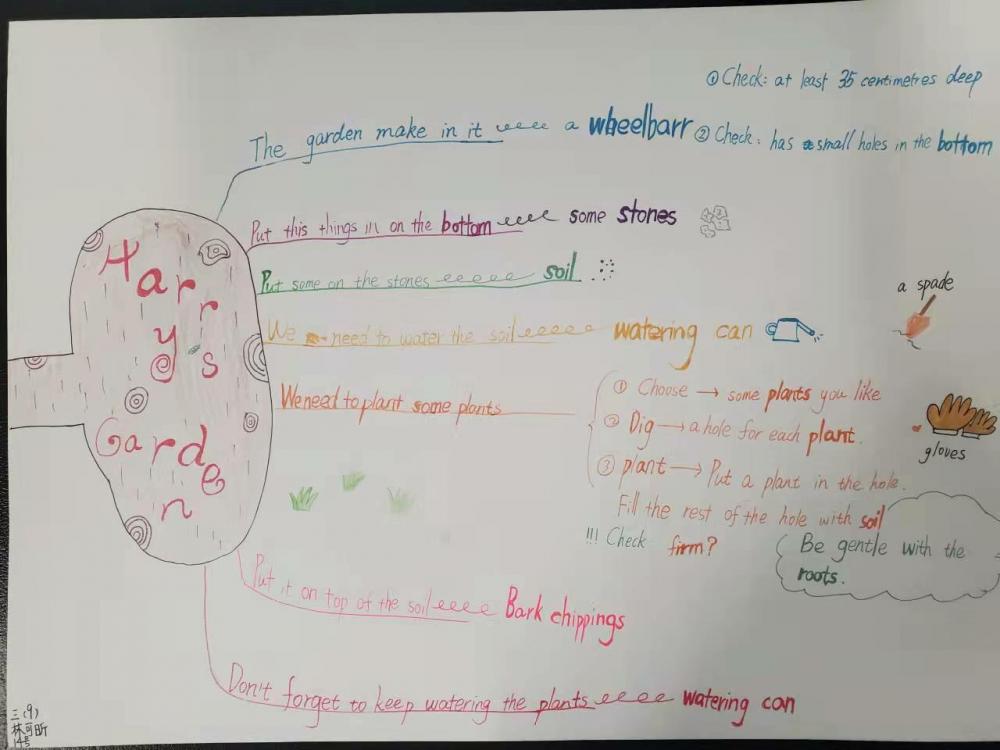 Harry's
Garden
① Check: at least 35 centimetres deep
The garden make in it a wheelbarr ② Check: has small holes in the bottom
Put this things in on the bottom some stones
Put some on the stones soil
a spade
We need to water the soil watering can
We need to plant some plants
① Choose → some plants you like
② Dig → a hole for each plant.
③ plant → Put a plant in the hole.
gloves
Fill the rest of the hole with soil
!!! Check firm?
Be gentle with the
roots.
Put it on top of the soil Bark chippings
Don't forget to keep watering the plants watering can
三(9)
林可昕
14号